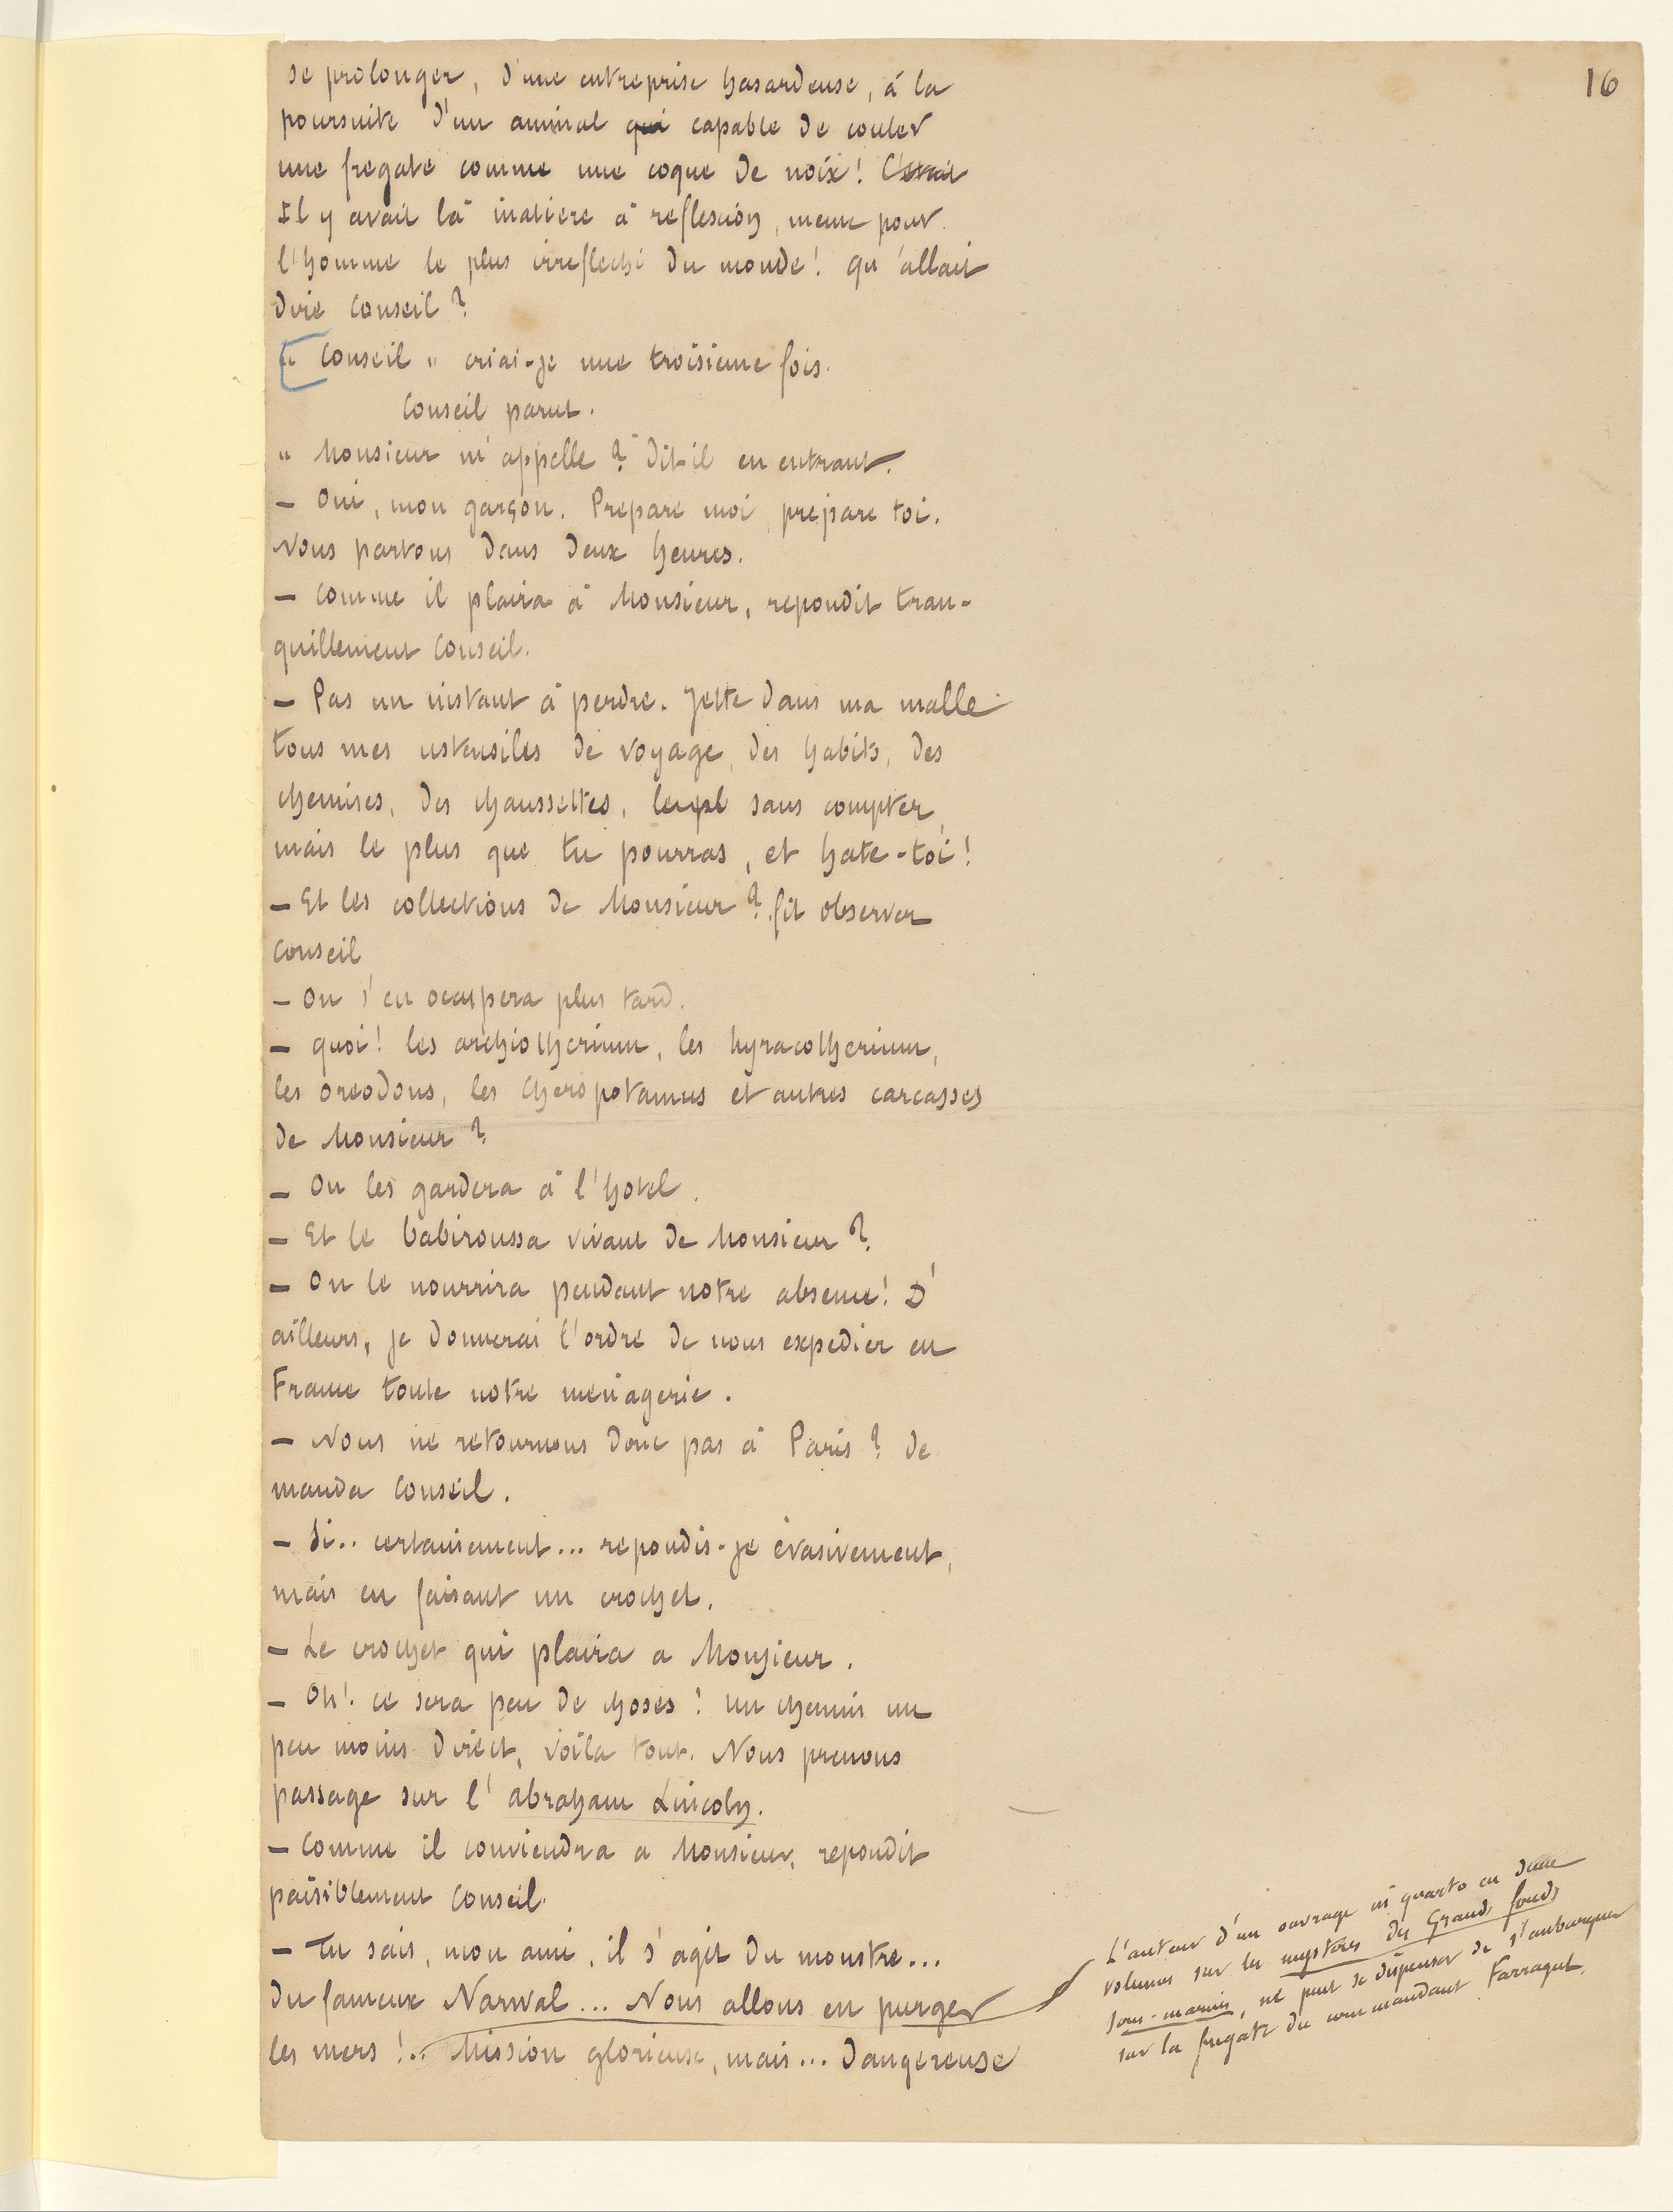 16
se prolonger, d'une entreprise hasardeuse, à la
poursuite d'un animal qui capable de couler
une fregate comme une coque de noix! C'était
Il y avait là matiere à reflexion, meme pour
l'homme le plus irreflechi du monde! Qu'allait
dire Conseil?
" Conseil " criai-je une troisieme fois.
Conseil parut.
" Monsieur m'appelle? dit-il en entrant.
— Oui, mon garçon. Prepare moi, prepare toi.
Nous partons dans deux heures.
— Comme il plaira à Monsieur, repondit tran-
quillement Conseil.
— Pas un instant à perdre. Jette dans ma malle
tous mes ustensiles de voyage, des habits, des
chemises, des chaussettes, sans compter,
mais le plus que tu pourras, et hate-toi!
— Et les collections de Monsieur? fit observer
Conseil
— On s'en occupera plus tard.
— quoi! les archiotherium, les hyracotherium,
les oreodons, les cheropotamus et autres carcasses
de Monsieur?
— On les gardera à l'hotel.
— Et le babiroussa vivant de Monsieur?
— On le nourrira pendant notre absence! D'
ailleurs, je donnerai l'ordre de nous expedier en
France toute notre menagerie.
— Nous ne retournons donc pas à Paris? de
manda Conseil.
— Si.. certainement... repondis-je évasivement,
mais en faisant un crochet.
— Le crochet qui plaira a Monsieur.
— Oh! ce sera peu de choses! un chemin un
peu moins direct, voila tout. Nous prenons
passage sur l'abraham Lincoln.
— Comme il conviendra a Monsieur, repondit
paisiblement Conseil.
— Tu sais, mon ami, il s'agit du monstre...
du fameux Narwal... Nous allons en purger
les mers!.. Mission glorieuse, mais... dangereuse
L'auteur d'un ouvrage in quarto en deux
volumes sur les mysteres des Grands fonds
sous-marins, ne peut se dispenser de s'embarquer
sur la fregate du commandant Farragut.